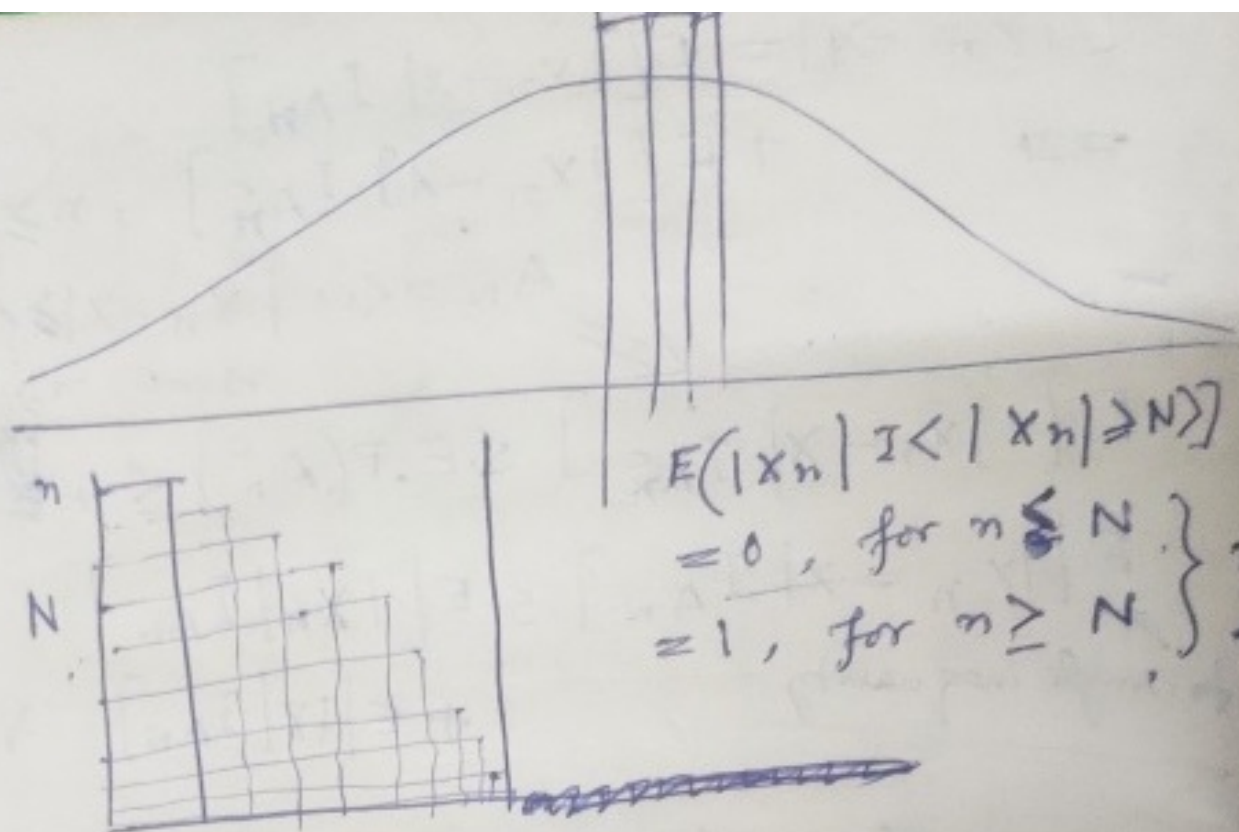 E(|Xn| I<|Xn|≥N>]
n
= 0, for n ≤ N
N
= 1, for n ≥ N